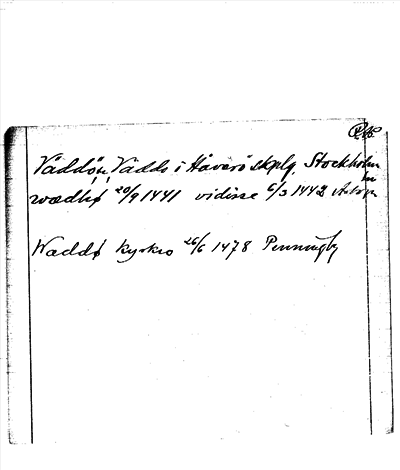 Väddön, Väddö i Häverö skplg. Stockholm
wædhø 20/9 1441 vidisse 6/3 1442
Waddø kyrkio 26/6 1478 Penningby